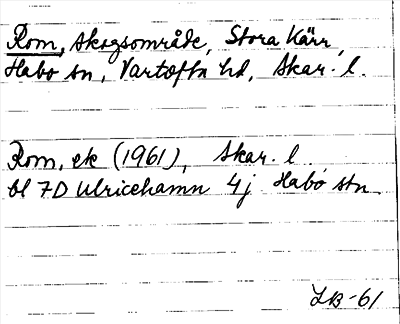 Rom, skogsområde, Stora Kärr,
Habo sn, Vartofta hd, Skar. l.
Rom, ek (1961), Skar. l.
bl 7D Ulricehamn 4j Habo sn
LB-61